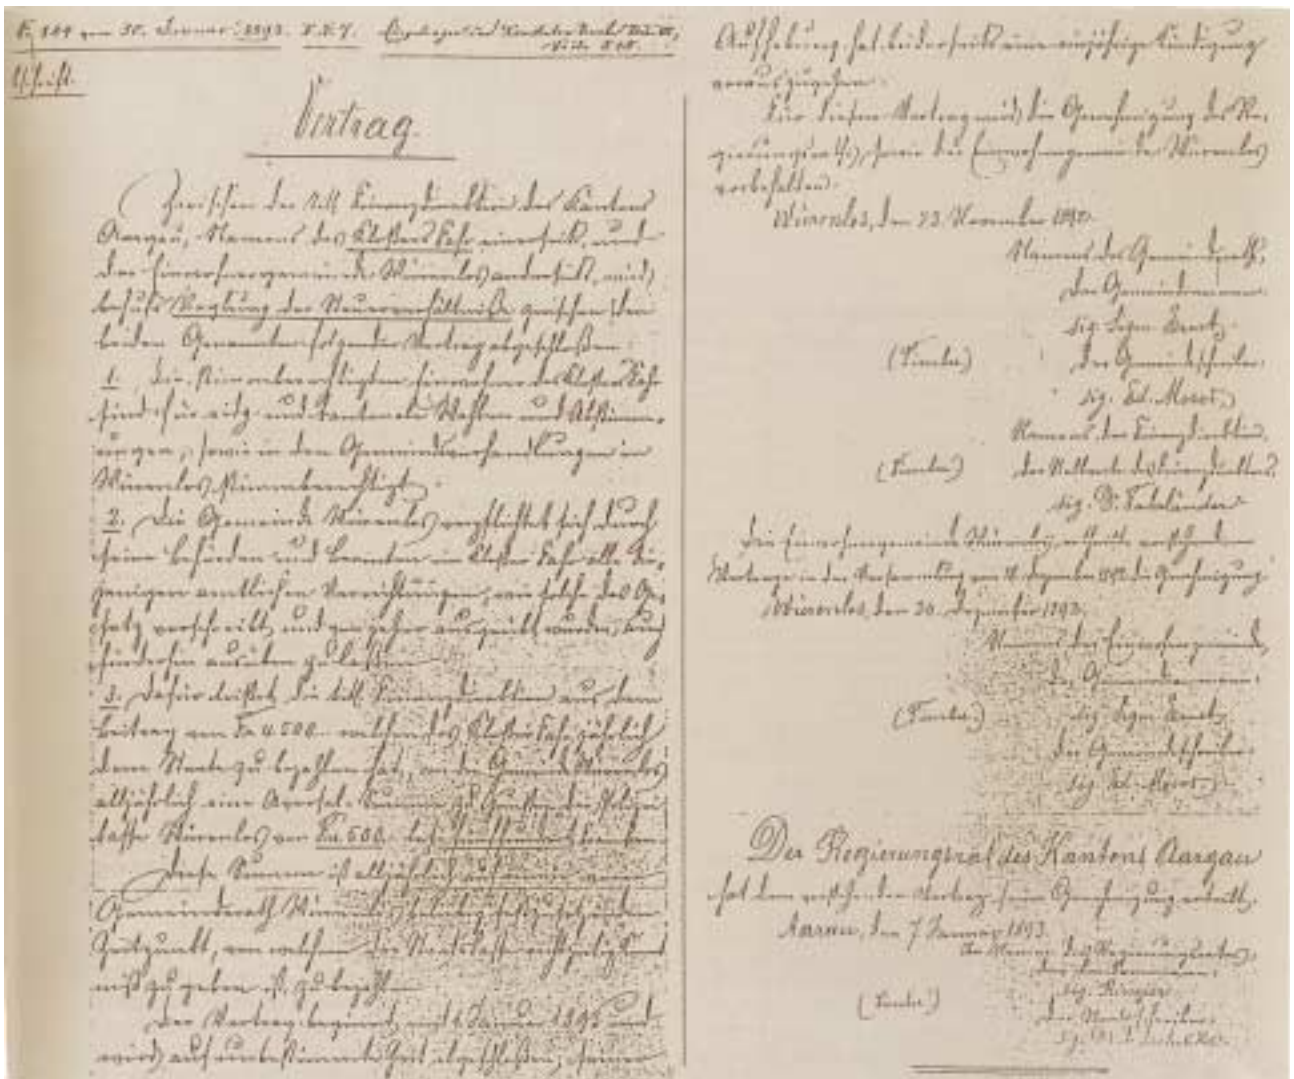 vom 30. Januar 1893. F. N. 7.
Abschrift.
Vertrag.
Zwischen der titl. Finanzdirektion des Kantons
Aargau, Namens des Klosters Fahr einerseits, und
der Einwohnergemeinde Würenlos anderseits, wird
behufs Reglung der Steuerverhältniße zwischen den
beiden Genannten folgender Vertrag abgeschloßen:
1. Die stimmberechtigten Einwohner des Klosters Fahr
sind für eidg. und kantonale Wahlen und Abstimm-
ungen, sowie in den Gemeindeverhandlungen in
Würenlos stimmberechtigt.
2. Die Gemeinde Würenlos verpflichtet sich durch
seine Behörden und Beamten im Kloster Fahr alle die-
jenigen amtlichen Verrichtungen, wie solche das Ge-
setz vorschreibt und von jeher ausgeübt wurden, auch
fürderhin ausüben zu laßen.
3. Dafür leistet die titl. Finanzdirektion aus dem
Beitrag von Fr. 4500.- welchen das Kloster Fahr jährlich
dem Staate zu bezahlen hat, an die Gemeinde Würenlos
alljährlich eine Aversal-Summe zu Gunsten der Polizei-
kasse Würenlos von Fr. 500.- fünfhundert Franken.
Diese Summe ist alljährlich auf einen vom
Gemeinderath Würenlos beliebig festzusetzenden
Zeitpunkt, von welchem der Staatskasse rechtzeitig Kennt-
niß zu geben ist, zu bezahlen.
Der Vertrag beginnt mit 1. Januar 1893 und
wird auf unbestimmte Zeit abgeschloßen; seiner
Aufhebung hat beiderseits eine einjährige Kündigung
vorauszugehen.
Für diesen Vertrag wird die Genehmigung des Re-
gierungsraths, sowie der Einwohnergemeinde Würenlos
vorbehalten.
Würenlos, den 23. November 1892.
Namens des Gemeinderaths,
Der Gemeindeammann:
sig.
(Stempel.) Der Gemeindeschreiber:
sig. Ed. Moser.
Namens der Finanzdirektion,
(Stempel.) der Finanzdirektor:
sig. Dr. Fahrländer
Die Einwohnergemeinde Würenlos ertheilte vorstehendem
Vertrage in der Versammlung vom Dezember 1892 die Genehmigung
Würenlos, den 30. Dezember 1892.
Namens der Einwohnergemeinde,
Der Gemeindeammann:
(Stempel.) sig.
Der Gemeindeschreiber:
sig. Ed. Moser.
Der Regierungsrat des Kantons Aargau
hat dem vorstehenden Vertrag seine Genehmigung ertheilt.
Aarau, den 7 Januar 1893.
Im Namen des Regierungsrates,
der Landammann:
sig. Ringier.
(Stempel.) Der Staatsschreiber:
sig.